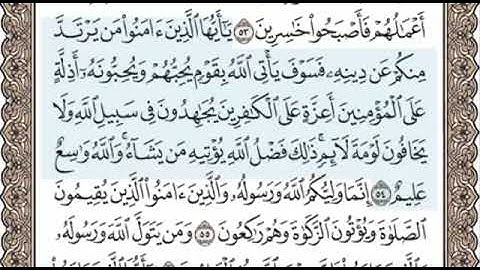 أَعْمَالُهُمْ فَأَصْبَحُوا۟ خَاسِرِينَ ٥٣ يَٰٓأَيُّهَا ٱلَّذِينَ ءَامَنُوا۟ مَن يَرْتَدَّ
مِنكُمْ عَن دِينِهِۦ فَسَوْفَ يَأْتِى ٱللَّهُ بِقَوْمٍ يُحِبُّهُمْ وَيُحِبُّونَهُۥٓ أَذِلَّةٍ
عَلَى ٱلْمُؤْمِنِينَ أَعِزَّةٍ عَلَى ٱلْكَٰفِرِينَ يُجَٰهِدُونَ فِى سَبِيلِ ٱللَّهِ وَلَا
يَخَافُونَ لَوْمَةَ لَآئِمٍ ۚ ذَٰلِكَ فَضْلُ ٱللَّهِ يُؤْتِيهِ مَن يَشَآءُ ۚ وَٱللَّهُ وَٰسِعٌ
عَلِيمٌ ٥٤ إِنَّمَا وَلِيُّكُمُ ٱللَّهُ وَرَسُولُهُۥ وَٱلَّذِينَ ءَامَنُوا۟ ٱلَّذِينَ يُقِيمُونَ
ٱلصَّلَوٰةَ وَيُؤْتُونَ ٱلزَّكَوٰةَ وَهُمْ رَٰكِعُونَ ٥٥ وَمَن يَتَوَلَّ ٱللَّهَ وَرَسُولَهُۥ